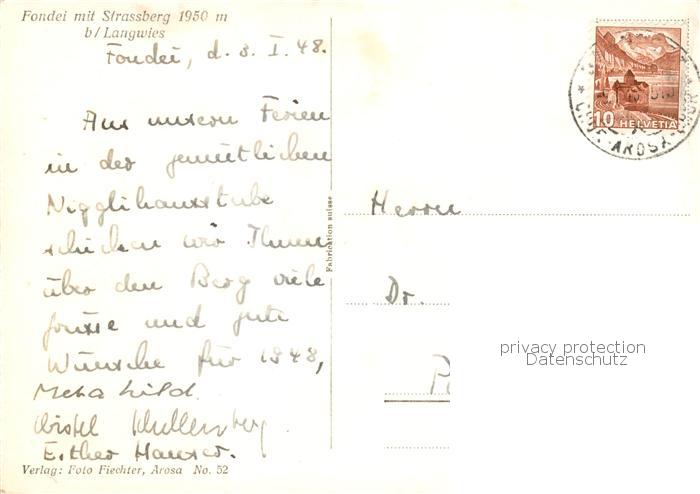 Fondei mit Strassberg 1950 m
b/Langwies
Fondei, d. 3. I. 48.
Aus unsern Ferien
in der gemütlichen
Nigglihausstube
schicken wir Ihnen
über den Berg viele
Grüsse und gute
Wünsche für 1948,
Meta Wild.
Christel Schullenberg
Esther Hauser.
Verlag: Foto Fiechter, Arosa No. 52
Fabrication suisse
10 HELVETIA
AROSA
Herrn
Dr.
privacy protection
Datenschutz